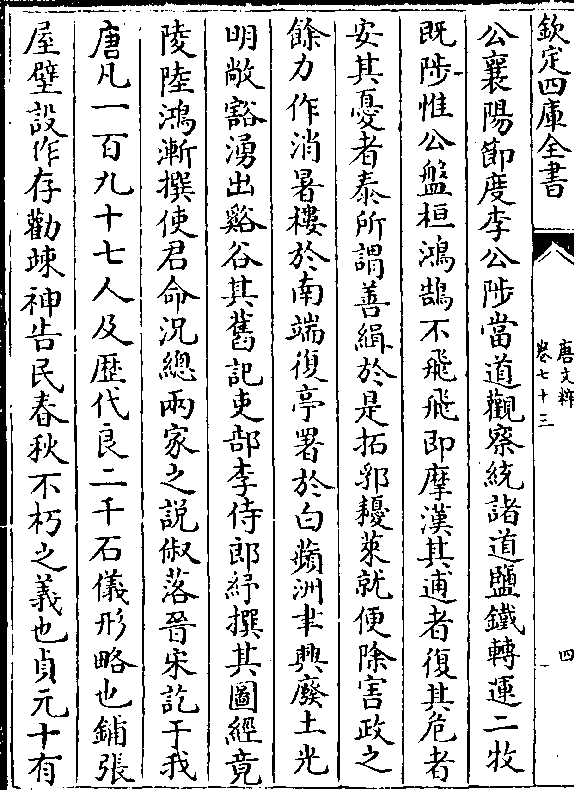 欽定四庫全書
唐文粹
卷七十三
四
公襄陽節度李公陟當道觀察統諸道鹽鐵轉運二牧
既陟惟公盤桓鴻鵠不飛飛即摩漢其逋者復其危者
安其憂者泰所謂善緝於是拓郛耰萊就便除害政之
餘力作消暑樓於南端復亭署於白蘋洲聿興廢土光
明敞豁湧出谿谷其舊記吏部李侍郎紓撰其圖經竟
陵陸鴻漸撰使君命況總兩家之説俶落晉宋訖于我
唐凡一百九十七人及歴代良二千石儀形略也鋪張
屋壁設作存勸竦神告民春秋不朽之義也貞元十有